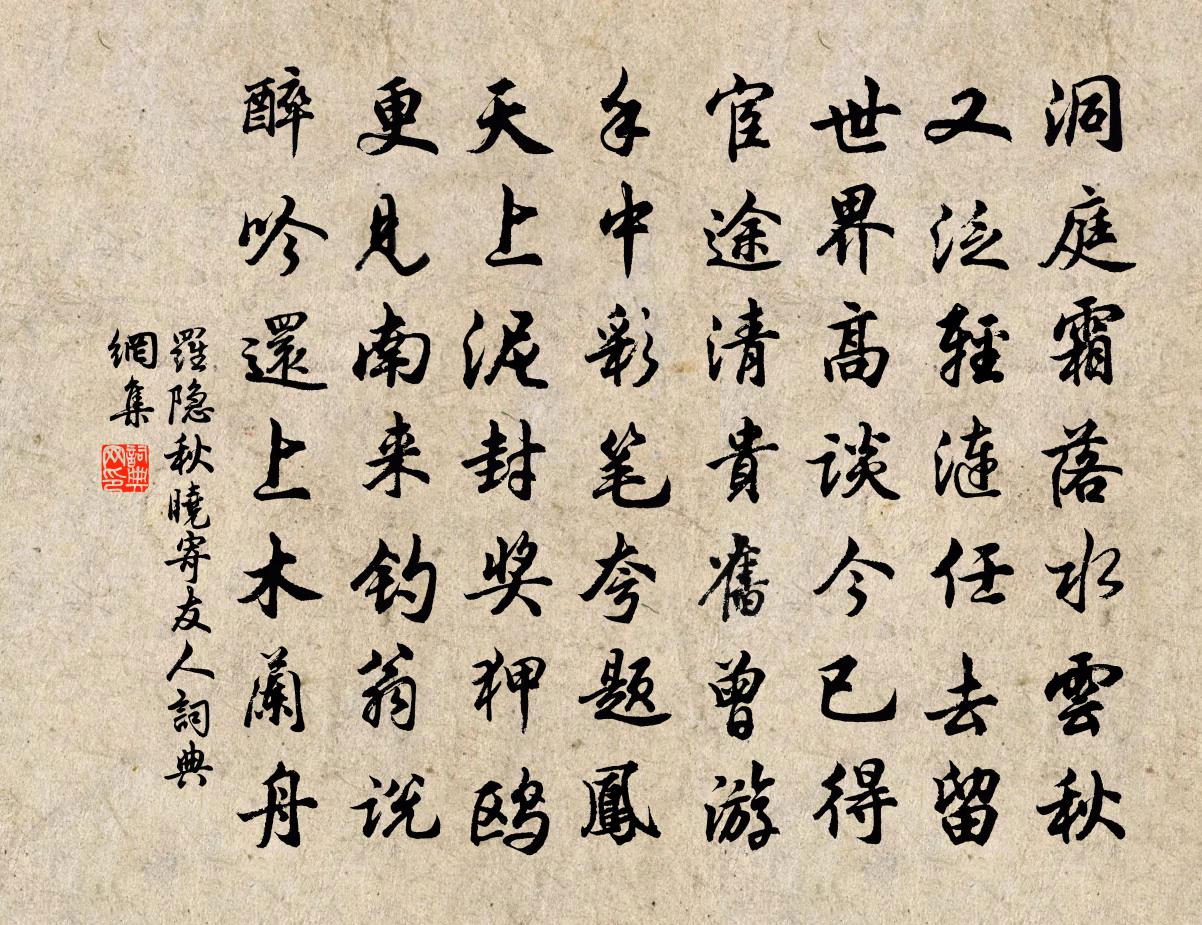 洞庭霜落水雲秋
又泛輕漣任去留
世界高谈今已得
宦途清貴舊曾游
手中彩笔夸題鳳
天上泥封奖狎鸥
更見南来钓翁说
醉吟還上木蘭舟
羅隐秋曉寄友人詞典
網集
詞典
网印